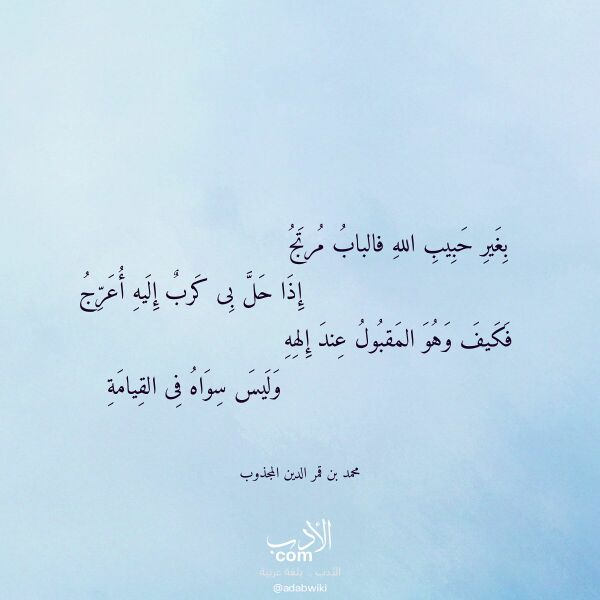 بِغَيرِ حَبِيبِ اللهِ فالبابُ مُرتَجُ
إِذَا حَلَّ بِى كَربٌ إِلَيهِ أُعَرِّجُ
فَكَيفَ وَهُوَ المَقبُولُ عِندَ إِلهِهِ
وَلَيسَ سِوَاهُ فِى القِيامَةِ
محمد بن قمر الدين المجذوب
الأدب
com
الأدب .. بلغة عربية
@adabwiki